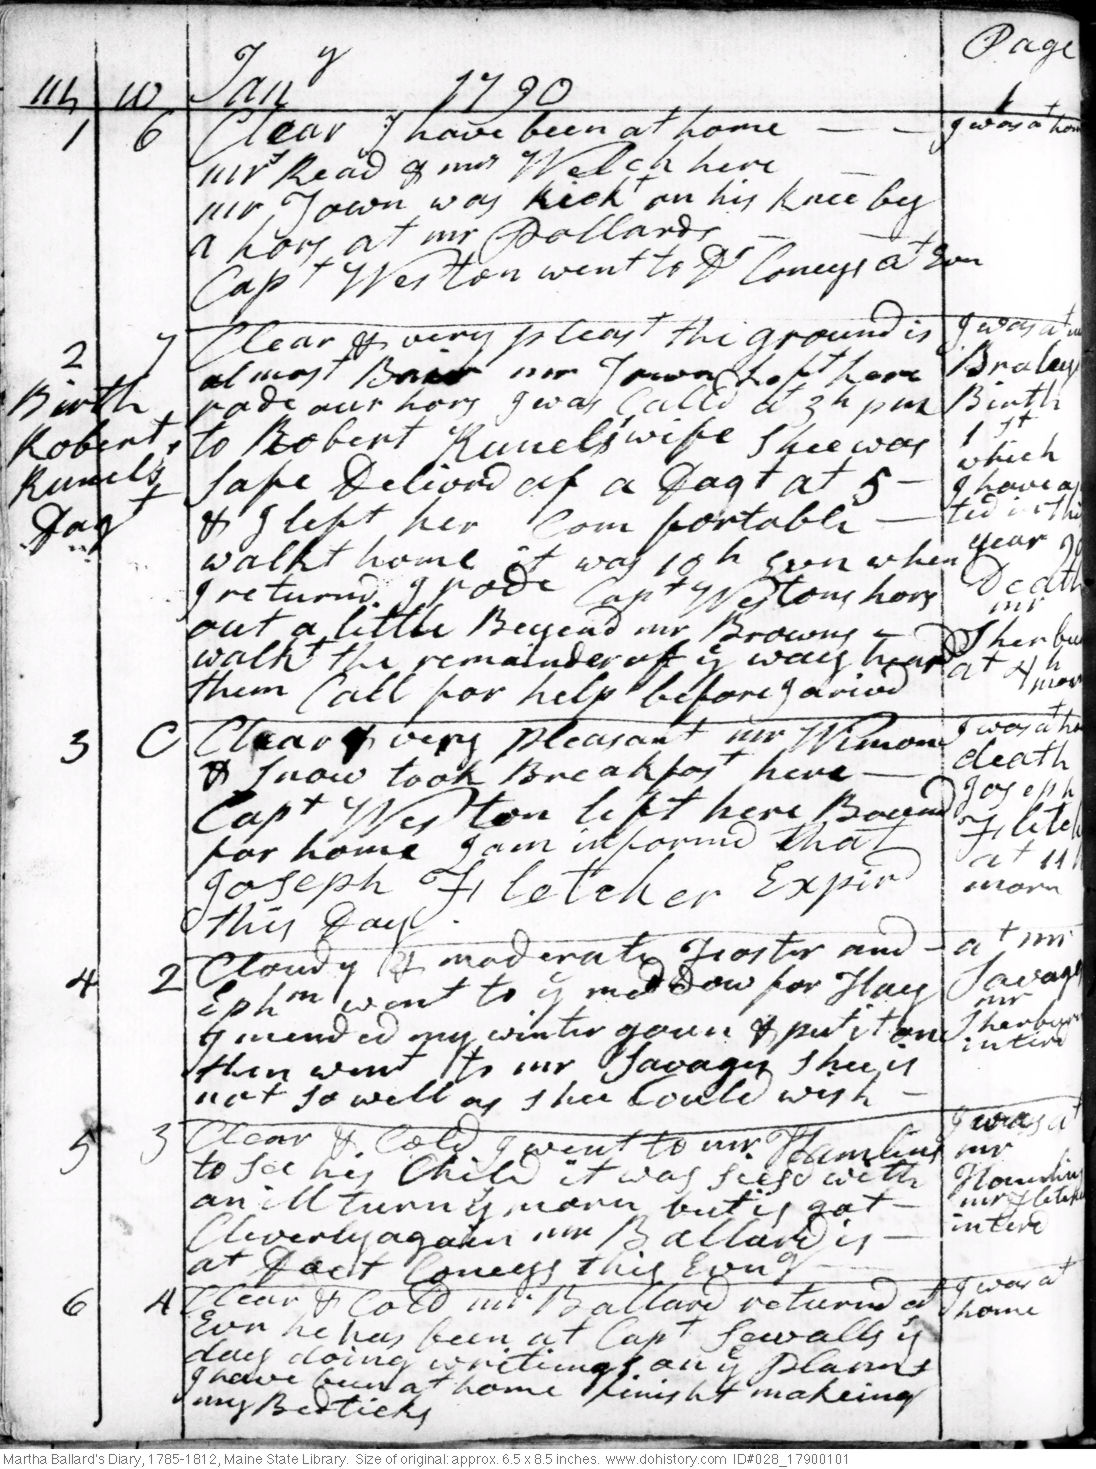 Page
Jany 1790 1
m w
1 6 Clear I have been at home — — I was at hom
mrs Read & mrs Welch here
mr Town was kickt on his knee by
a hors at mr Pollards —
Capt Weston went to Dr Coneys at Evn
2 7 Clear & very pleast the ground is I was at
almost Bair mr Town Left here Braleys
Birth rode our hors I was Calld at 3h pm Birth
Robert to Robert Runels wife Shee was 1st
Runels safe Deliverd of a Dagt at 5 — which
Dagt & I left her Comfortable — I have a
walkt home it was 10h Evn when year
I returnd I rode Capt Westons hors Death
out a little Beyend mr Browns — mr
walkt the remainder of ye way heard Sherbu
them Call for help before I arivd at 4h morn
3 C Clear & very pleasant mr Wimon I was at ho
& Snow took Breakfast here — death
Capt Weston left here Bound Joseph
for home I am informd that Fletch
Joseph Fletcher Expird at 11h
this Day. morn
4 2 Cloudy & moderate Foster and — at mr
Ephm went to ye meddow for Hay Savages
I mended my winter goun & put it on mr Sherbur
then went to mr Savages Shee is interd
not so well as shee Could wish —
5 3 Clear & Cold I went to mr Hamlins I was at
to see his Child it was siesd with mr
an ill turn ye morn but is got — Hamlins
Cleverly again mr Ballard is — mr Fletche
at Doct Coneys this Evng — interd
6 4 Clear & Cold mr Ballard returnd at I was at
Evn he has been at Capt Sewalls ye home
day doing writings on ye plann
I have been at home finisht makeing
my Bedticks
Martha Ballard's Diary, 1785-1812, Maine State Library. Size of original: approx. 6.5 x 8.5 inches. www.dohistory.com ID#028_17900101